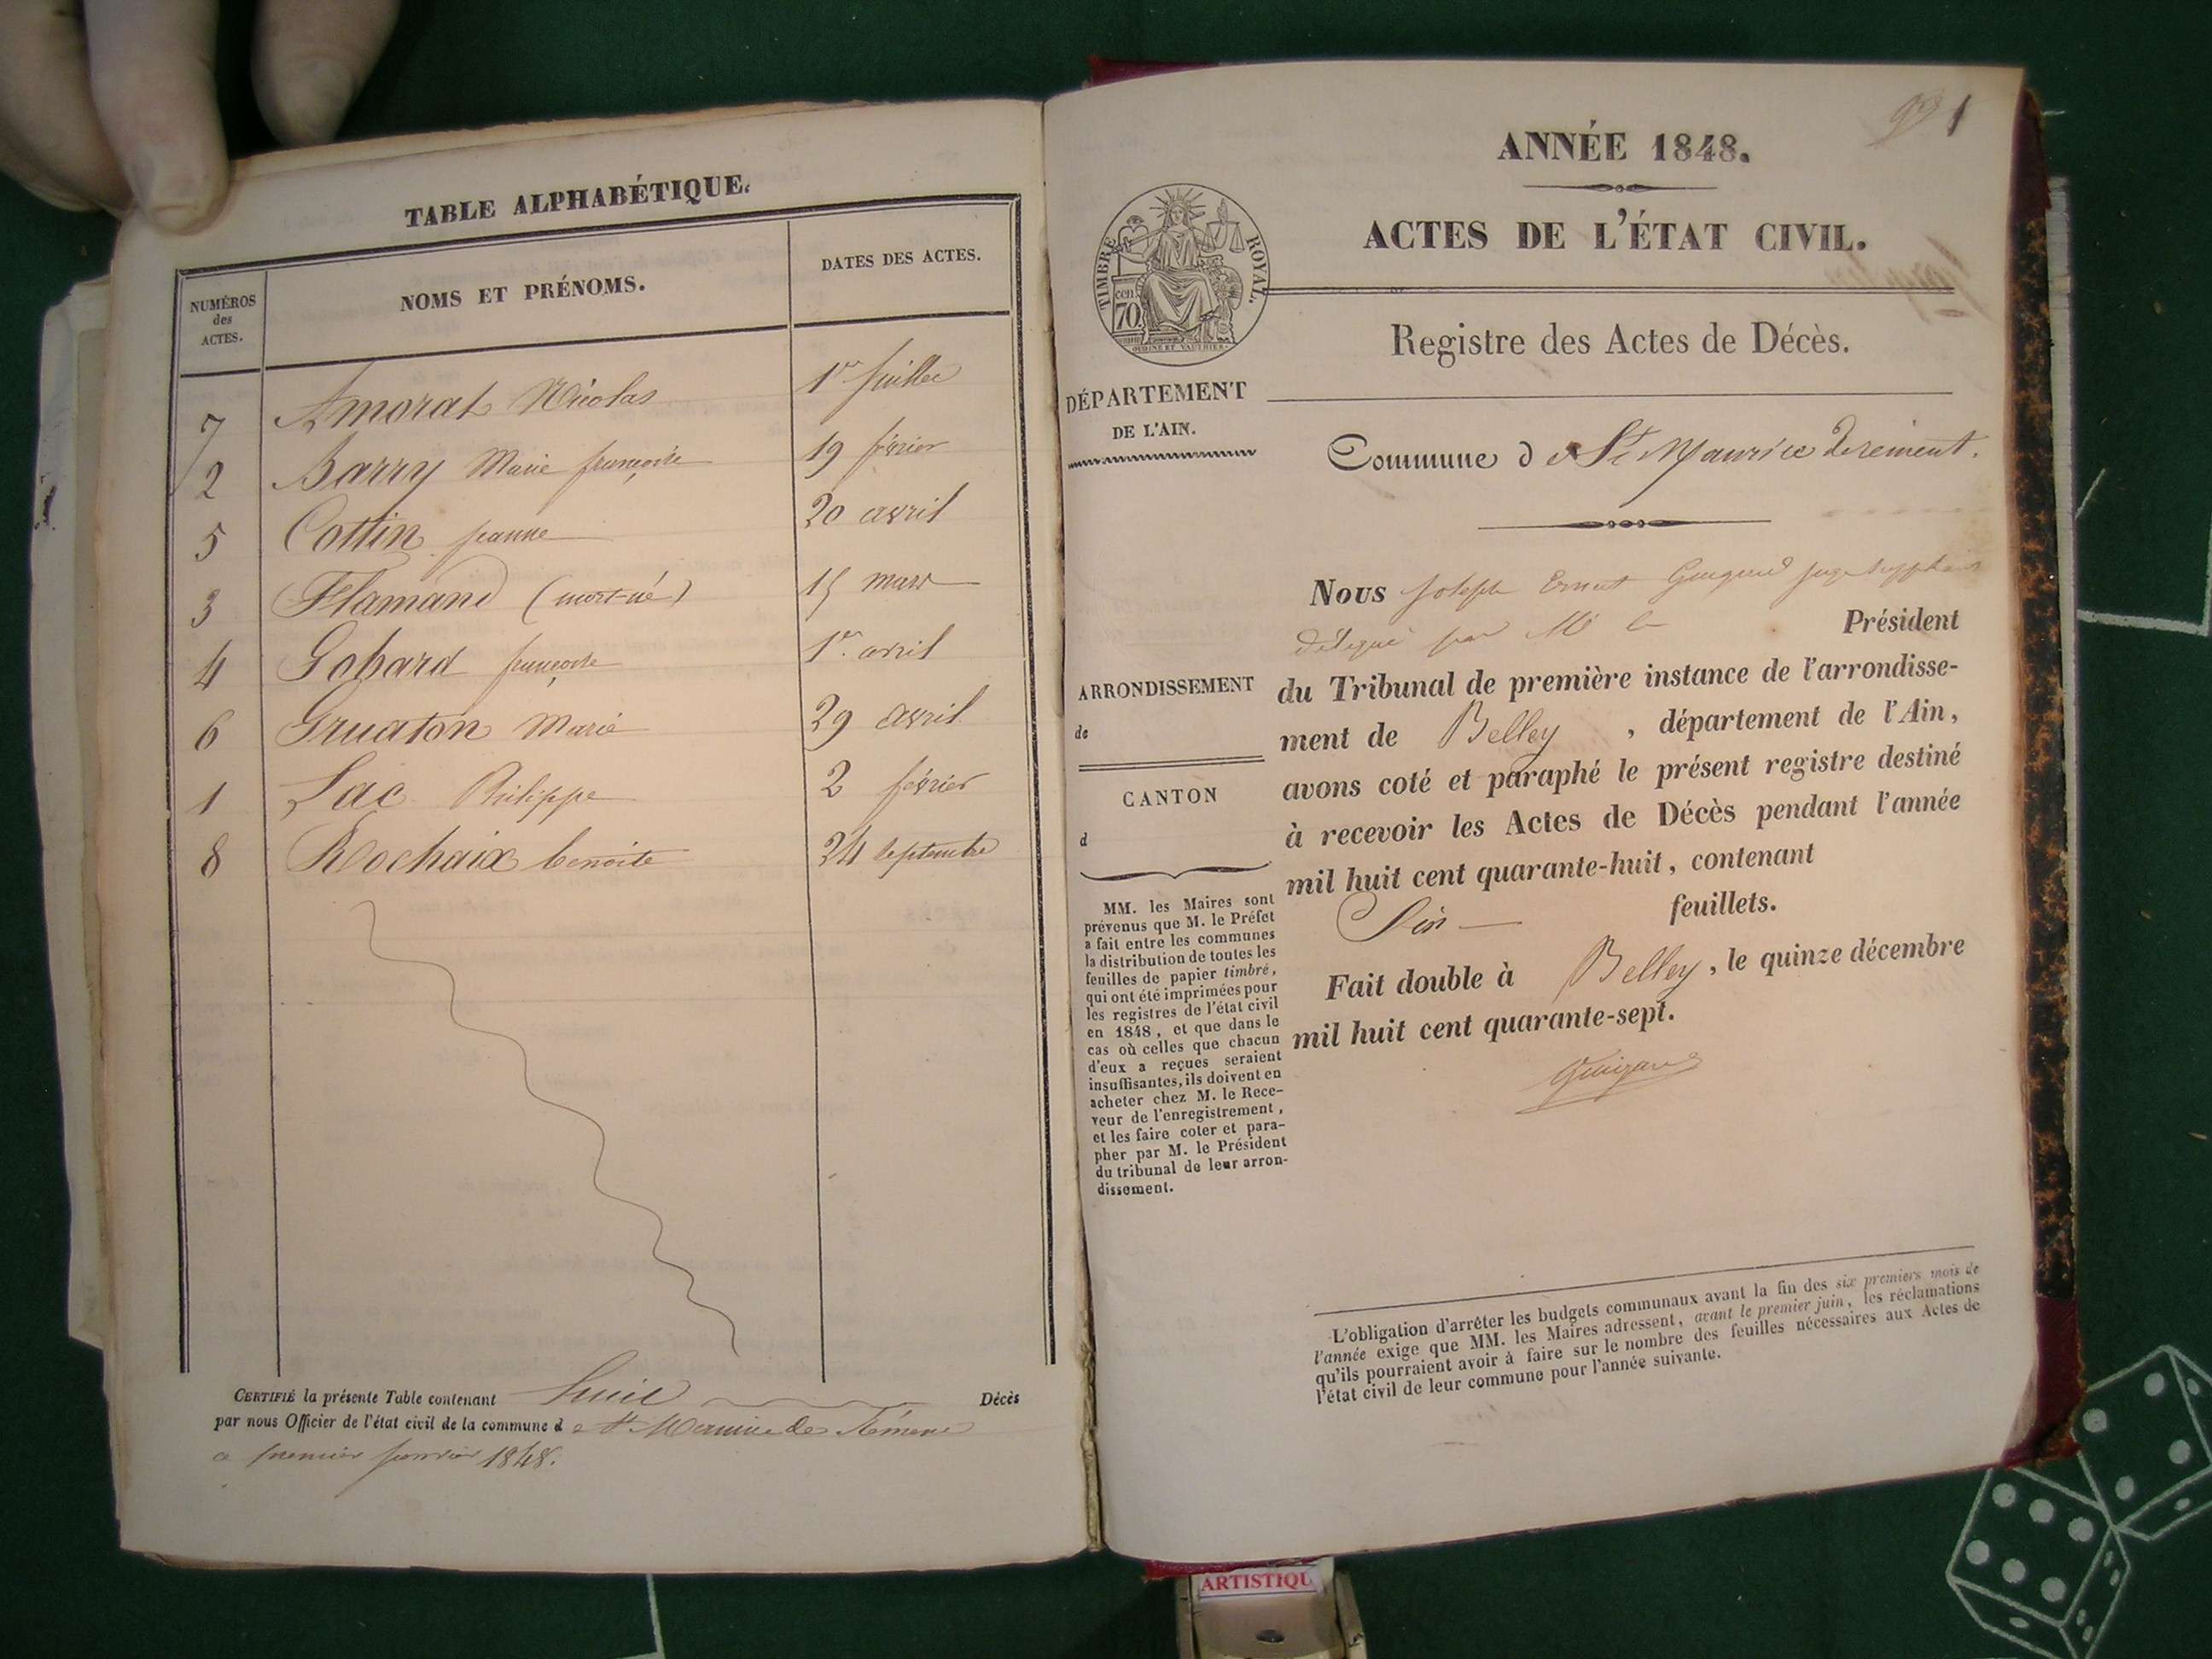 TABLE ALPHABÉTIQUE.
NUMÉROS
des
ACTES.
NOMS ET PRÉNOMS.
DATES DES ACTES.
7 Amorat Nicolas 1er juillet
2 Barry Marie françoise 19 février
5 Cottin jeanne 20 avril
3 Flamand (mort-né) 15 mars
4 Gobard françoise 1er avril
6 Gruaton Marie 29 avril
1 Lac Philippe 2 février
8 Rochaix benoite 24 septembre
CERTIFIÉ la présente Table contenant huit Décès
par nous Officier de l'état civil de la commune de St Maurice de Rémens
a premier janvier 1848.
1
ANNÉE 1848.
ACTES DE L'ÉTAT CIVIL.
TIMBRE ROYAL.
cen
70
Registre des Actes de Décès.
DÉPARTEMENT
DE L'AIN.
Commune de St Maurice derément.
ARRONDISSEMENT
de
CANTON
d
MM. les Maires sont
prévenus que M. le Préfet
a fait entre les communes
la distribution de toutes les
feuilles de papier timbré,
qui ont été imprimées pour
les registres de l'état civil
en 1848, et que dans le
cas où celles que chacun
d'eux a reçues seraient
insuffisantes, ils doivent en
acheter chez M. le Rece-
veur de l'enregistrement,
et les faire coter et para-
pher par M. le Président
du tribunal de leur arron-
dissement.
Nous Joseph Ernest juge suppléant
délégué par Mr le Président
du Tribunal de première instance de l'arrondisse-
ment de Belley, département de l'Ain,
avons coté et paraphé le présent registre destiné
à recevoir les Actes de Décès pendant l'année
mil huit cent quarante-huit, contenant
feuillets.
Fait double à Belley, le quinze décembre
mil huit cent quarante-sept.
L'obligation d'arrêter les budgets communaux avant la fin des six premiers mois de
l'année exige que MM. les Maires adressent, avant le premier juin, les réclamations
qu'ils pourraient avoir à faire sur le nombre des feuilles nécessaires aux Actes de
l'état civil de leur commune pour l'année suivante.
ARTISTIQU